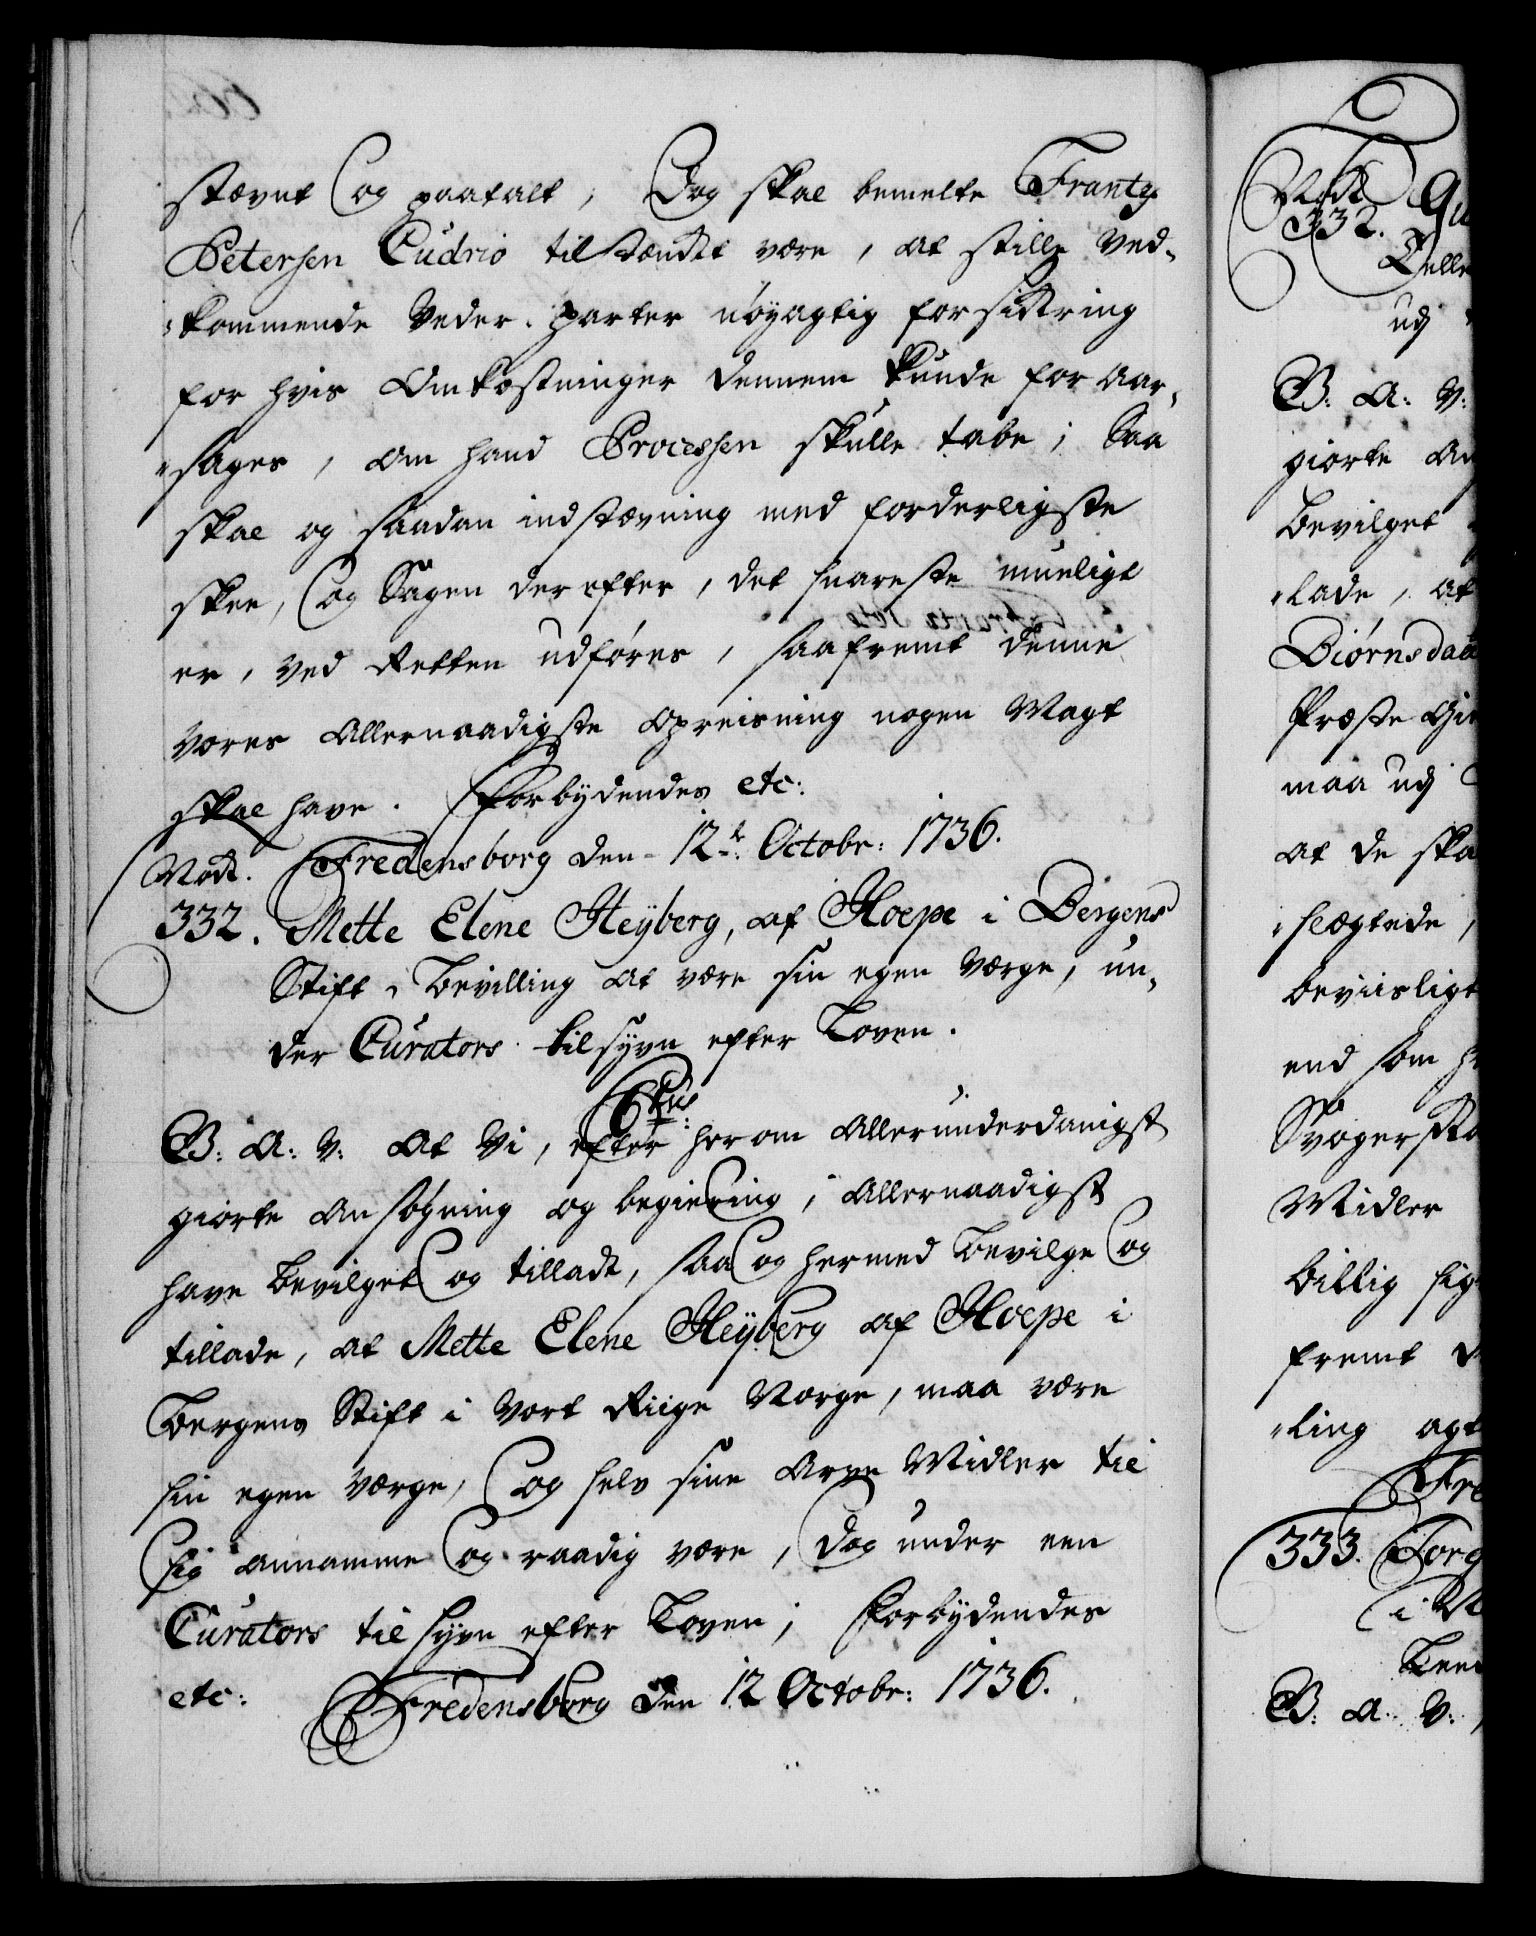 stævnt og paatalt, Dog skal bemelte Frantz
Petersen Cudrio tilstændt være, at stille ved-
kommende Veder-parter nøyagtig forsikring
for hvis Omkostninger dennem kunde foraar-
sages, om hand Processen skulle tabe; Saa
skal og saadan indstævning med forderligste
skee, og Sagen derefter, det snareste mueligt
er, ved Retten udføres, saafremt denne
vores Allernaadigste Opreisning nogen Magt
skal have. Forbydendes etc:
Fredensborg den 12te Octobr: 1736.
Nodt.
332. Mette Elene Heyberg, af Hoepe i Bergens
Stift, Bevilling at være sin egen Værge, un-
der Curators tilsyn efter Loven.
C6tus
B: A: V: At Vi, efter herom Allerunderdanigst
giorte Ansøgning og begiering, Allernaadigst
have bevilget og tilladt, saa og hermed bevilge og
tillade, at Mette Elene Heyberg af Hoepe i
Bergens Stift i Vort Riige Norge, maa være
sin egen Værge, og selv sine Arve Midler til
sig annamme og raadig være, Dog under een
Curators tilsyn efter Loven; Forbydendes
etc: Fredensborg den 12 Octobr: 1736.
Nodt
332.
ud
B: A: V:
giorte An
bevilget
lade, at
Biørnsdatt
Præste Gie
maa ud
at de ska
slægtede,
beviisligt
end som h
Svogersk
Midler
billig sig
fremt d
ling agt
Fre
333. Jorg
i N
B: A: V: